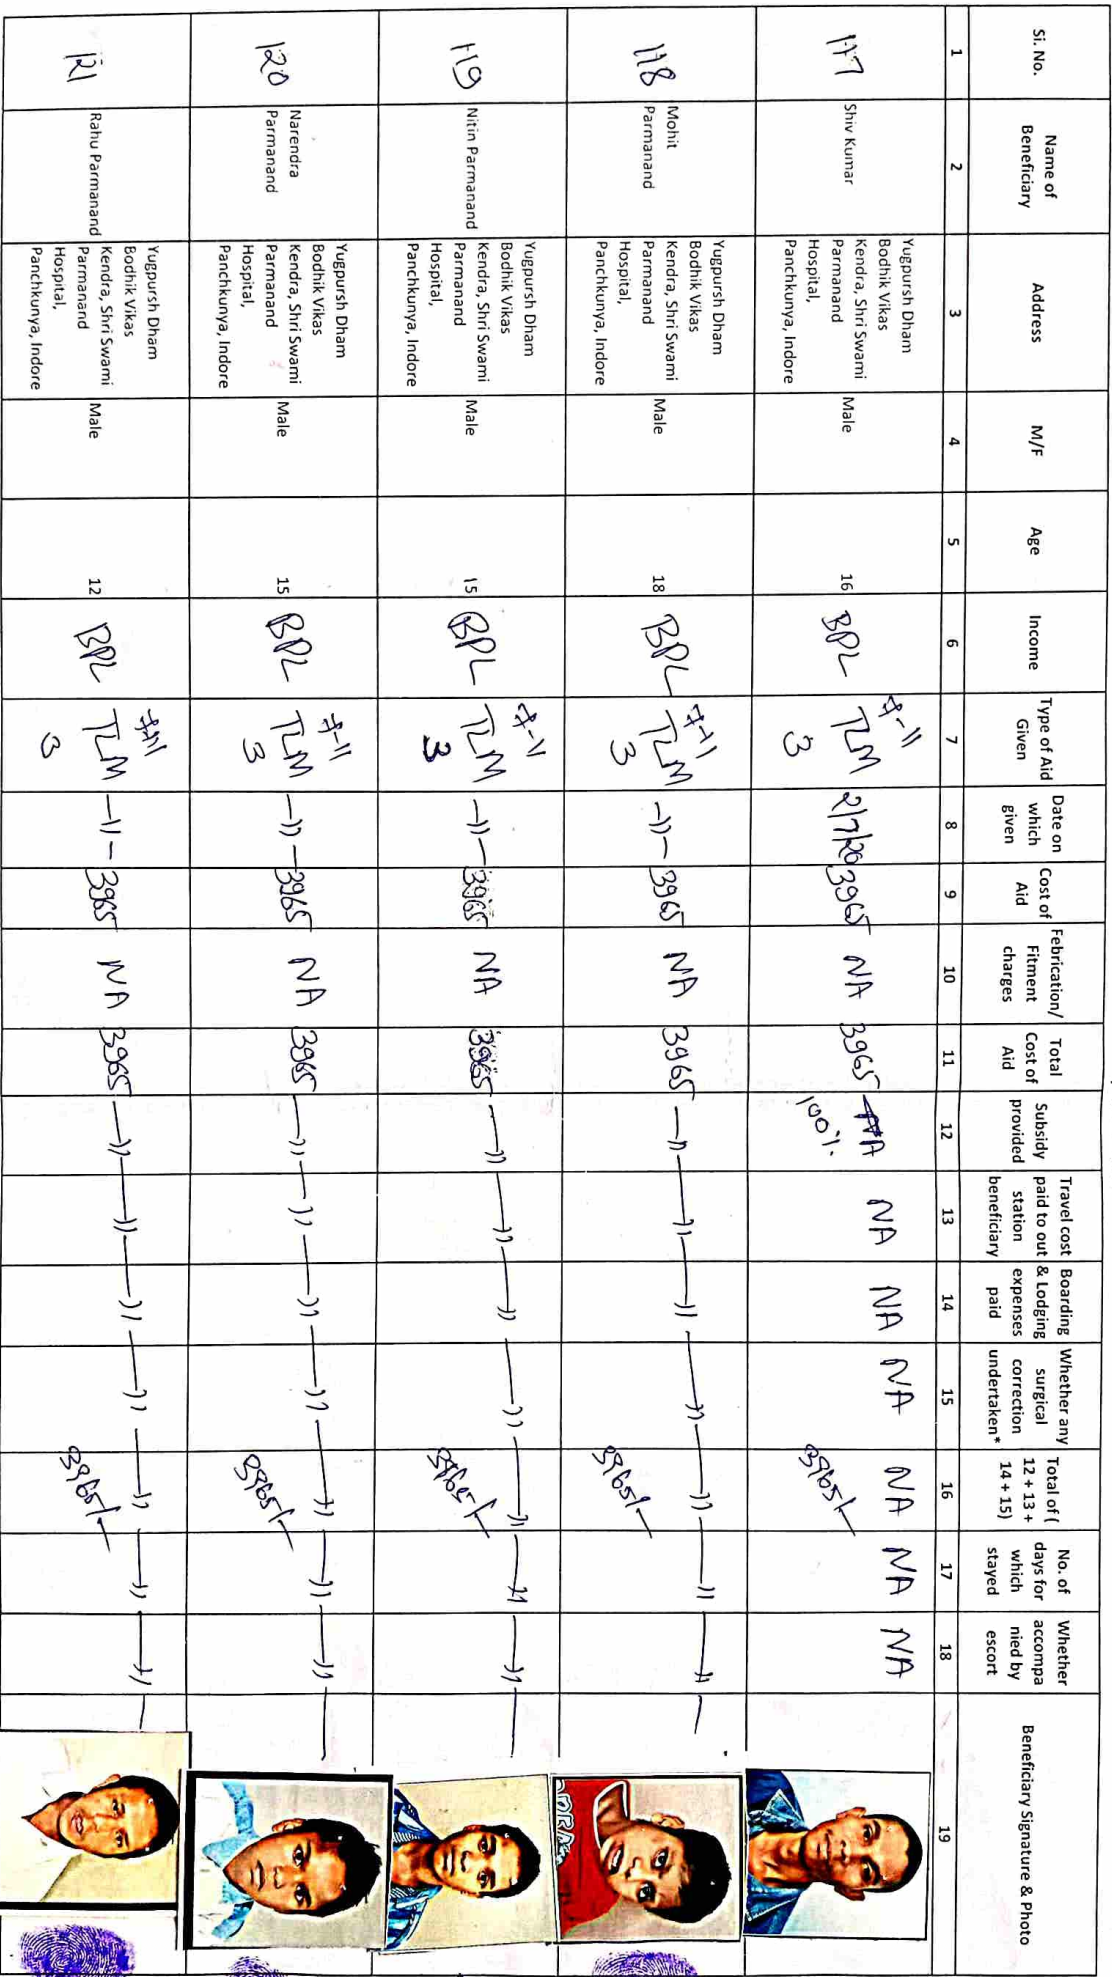 Si. No.
Name of
Beneficiary
Address
M/F
Age
Income
Type of Aid
Given
Date on
which
given
Cost of
Aid
Febrication/
Fitment
charges
Total
Cost of
Aid
Subsidy
provided
Travel cost
paid to out
station
beneficiary
Boarding
& Lodging
expenses
paid
Whether any
surgical
correction
undertaken*
Total of (
12 + 13 +
14 + 15)
No. of
days for
which
stayed
Whether
accompa
nied by
escort
Beneficiary Signature & Photo
1 2 3 4 5 6 7 8 9 10 11 12 13 14 15 16 17 18 19
117
Shiv Kumar
Yugpursh Dham
Bodhik Vikas
Kendra, Shri Swami
Parmanand
Hospital,
Panchkunya, Indore
Male
16
BPL
7-11
TLM
3
2/7/20
3965
NA
3965
NA
100%
NA
NA
NA
NA
3965/-
NA
NA
118
Mohit
Parmanand
Yugpursh Dham
Bodhik Vikas
Kendra, Shri Swami
Parmanand
Hospital,
Panchkunya, Indore
Male
18
BPL
7-11
TLM
3
-11-
3965
NA
3965
-11- -11- -11- -11- -11- -11- -11-
3965/-
119
Nitin Parmanand
Yugpursh Dham
Bodhik Vikas
Kendra, Shri Swami
Parmanand
Hospital,
Panchkunya, Indore
Male
15
BPL
7-11
TLM
3
-11-
3965
NA
3965
-11- -11- -11- -11- -11- -11- -11-
3965/-
120
Narendra
Parmanand
Yugpursh Dham
Bodhik Vikas
Kendra, Shri Swami
Parmanand
Hospital,
Panchkunya, Indore
Male
15
BPL
7-11
TLM
3
-11-
3965
NA
3965
-11- -11- -11- -11- -11- -11- -11-
3965/-
121
Rahu Parmanand
Yugpursh Dham
Bodhik Vikas
Kendra, Shri Swami
Parmanand
Hospital,
Panchkunya, Indore
Male
12
BPL
7-11
TLM
3
-11-
3965
NA
3965
-11- -11- -11- -11- -11- -11- -11-
3965/-